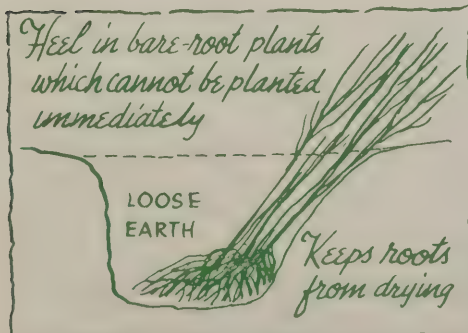 Heel in bare-root plants
which cannot be planted
immediately
LOOSE
EARTH
Keeps roots
from drying